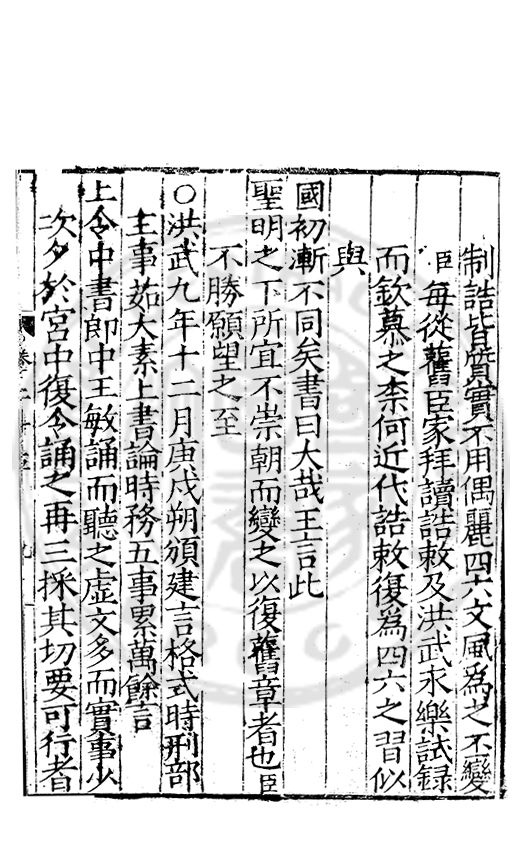 制誥皆質實不用偶麗四六文風爲之丕變
臣每從舊臣家拜讀誥敕及洪武永樂試録
而欽慕之柰何近代誥敕復爲四六之習似
與
國初漸不同矣書曰大哉王言此
聖明之下所宜不崇朝而變之以復舊章者也臣
不勝願望之至
○洪武九年十二月庚戌朔頒建言格式時刑部
主事茹大素上書論時務五事累萬餘言
上令中書郎中王敏誦而聽之虚文多而實事少
次夕於宮中復令誦之再三採其切要可行者